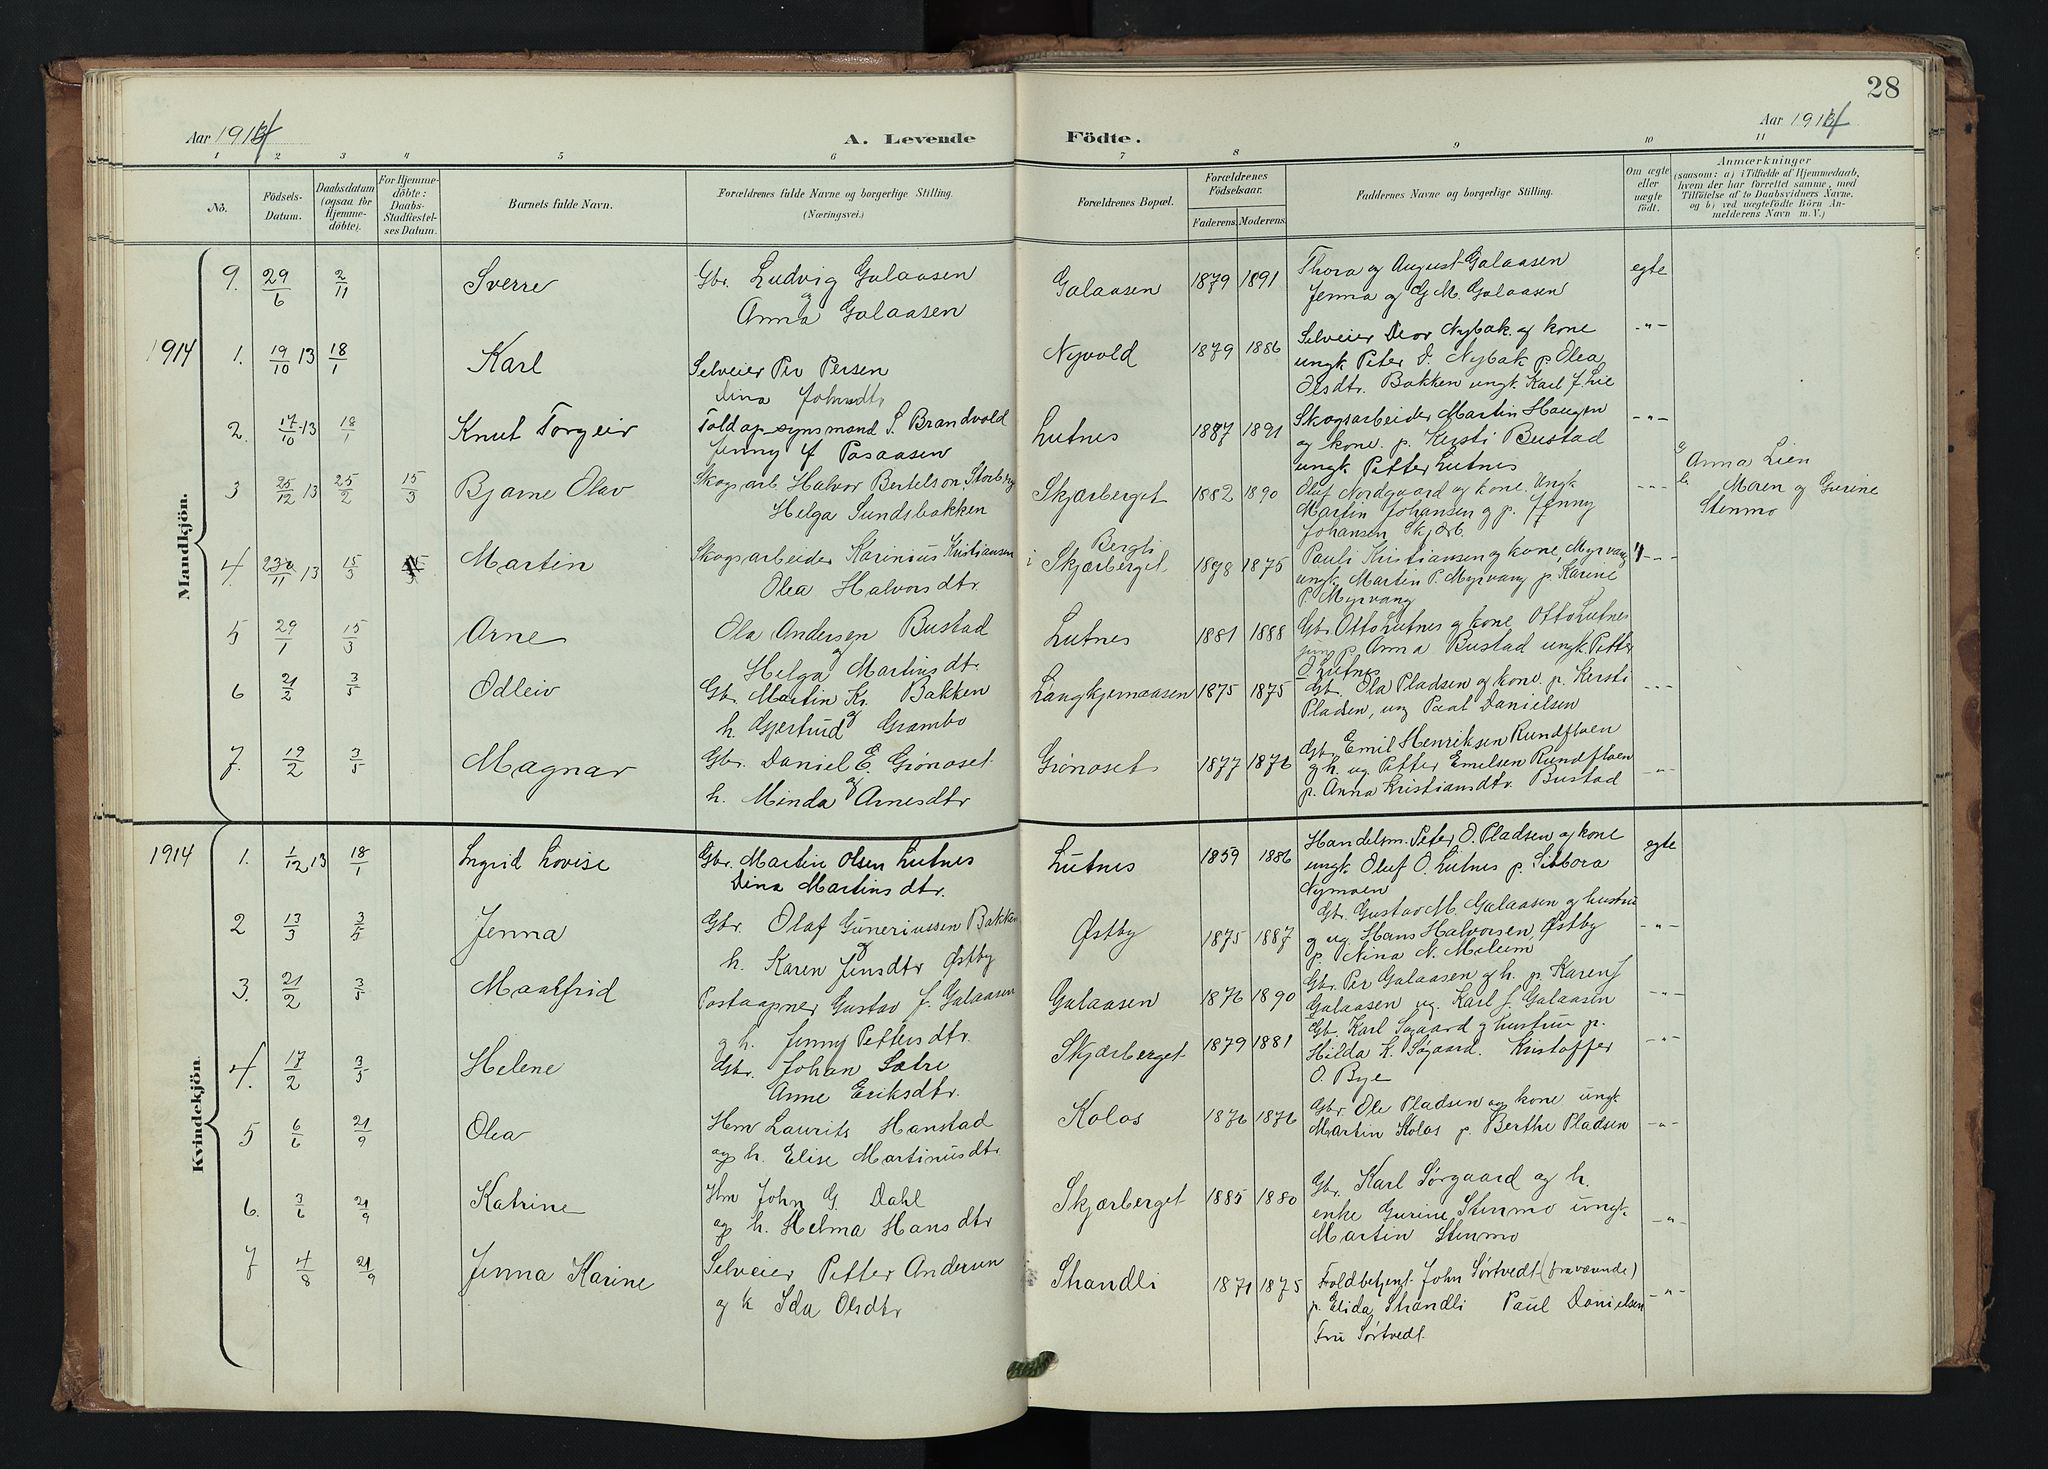 28
Aar 1914
A. Levende
Födte.
Aar 1914
1 2 3 4 5 6 7 8 9 10 11
No.
Födsels-Datum.
Daabsdatum (ogsaa for Hjemmedöbte).
For Hjemmedöbte: Daabs-Stadfæstelses Datum.
Barnets fulde Navn.
Forældrenes fulde Navne og borgerlige Stilling. (Næringsvei.)
Forældrenes Bopæl.
Forældrenes Födselsaar.
Faderens. Moderens.
Faddernes Navne og borgerlige Stilling.
Om ægte eller uægte födt.
Anmærkninger
(saasom: a) i Tilfælde af Hjemmedaab,
hvem der har forrettet samme, med
Tilföielse af to Daabsvidners Navne.
og b) ved uægtefödte Börn An-
melderens Navn m. V.)
Mandkjön.
9. 29/6 2/11 Sverre Gbr. Ludvig Galaasen
og Anna Galaasen
Galaasen 1879 1891 Thora og August Galaasen
Jenna og G. M. Galaasen
egte
1914 1. 19/10 13 18/1 Karl Selveier Per Persen
Dina Johnsdtr
Nyvold 1879 1886 Selveier Peor Nybak og kone
ungk Peter O. Nybak p. Olea
Olsdtr. Bakken ungk. Karl J. Lie
-"-
2. 17/10 13 18/1 Knut Torgeir Toldopsynsmand S. Brandvold
Jenny f Pasaasen
Lutnes 1887 1891 Skogsarbeider Martin Haugen
og kone. p. Kersti Bustad
ungk. Petter Lutnes
-"-
3 25/12 13 25/2 15/3 Bjarne Olav Skogsarb. Halvor Bertelson Storberg
Helga Sundsbakken
Skjærberget 1882 1890 Oluf Nordgaard og kone. Ungk
Martin Johansen og p. Jenny
Johansen Skjærb.
-"-
Anna Lien
Maren og Gurine
Stenmo
4. 23/11 13 15/3 Martin Skogsarbeider Karinius Kristiansen
Olea Halvorsdtr.
Bergli
i Skjærberget 1878 1875 Pauli Kristiansen og kone, Myrvang
ungk. Martin P. Myrvang p. Karine
P. Myrvang
-"-
5 29/1 15/3 Arne Ola Andersen Bustad
og Helga Martinsdtr.
Lutnes 1881 1888 Gbr. Otto Lutnes og kone Otto Lutnes
jun p. Anna Bustad ungk. Petter
O. Lutnes
6 21/2 3/5 Odleiv Gbr. Martin Kr. Bakken
og h. Gjertrud Grambo
Langkjernaasen 1875 1875 Gbr. Ola Pladsen og kone. p. Kersti
Pladsen, ung Paal Danielsen
-"-
7. 19/2 3/5 Magnar Gbr. Daniel E. Grönoset
og h. Minda Arnesdtr
Grönoset 1877 1876 Gbr. Emil Henriksen Rundfloen
og h. ug. Petter Emelsen Rundfloen
p. Anna Kristiansdtr. Bustad
-"-
Kvindekjön.
1914 1. 1/12 13 18/1 Ingrid Lovise Gbr. Martin Olsen Lutnes
Dina Martinsdtr.
Lutnes 1859 1886 Handelsm. Peter O. Pladsen og kone
ungk. Oluf O. Lutnes p. Sibbora
Nymoen
egte
2 13/3 3/5 Jenna Gbr. Olaf Guneriussen Bakken
og h. Karen Jensdtr Østby
Østby 1875 1887 Gbr. Gustav M. Galaasen og hustru
og ug. Hans Halvorsen, Østby
p. Nina N. Melum
-"-
3. 21/2 3/5 Maalfrid Postaapner Gustav J. Galaasen
og h. Jenny Pettersdtr.
Galaasen 1876 1890 Gbr. Per Galaasen og h. p. Karen J
Galaasen ug. Karl J. Galaasen
-"-
4. 17/2 3/5 Helene Gbr. Johan Sætre
Anne Eriksdtr.
Skjærberget 1879 1881 Gbr. Karl Søgaard og hustru p.
Hilda K. Søgaard. Kristoffer
O. Bye
-"-
5 6/6 21/9 Olea Hm Laurits Hanstad
og h. Elise Martinusdtr
Kolos 1876 1876 Gbr. Ole Pladsen og kone ungk
Martin Kolos p. Berthe Pladsen
-"-
6. 3/6 21/9 Katrine Hm John G. Dahl
og h. Helma Hansdtr
Skjærberget 1885 1880 Gbr. Karl Sørgaard og h.
enke Gurine Stenmo ungk.
Martin Stenmo
-"-
7 4/8 21/9 Jenna Karine Selveier Petter Andersen
og k Ida Olsdtr
Strandli 1871 1875 Toldbetjent John Sørtvedt (fraværende)
p. Elida Strandli Paul Danielsen
Fru Sørtvedt.
-"-